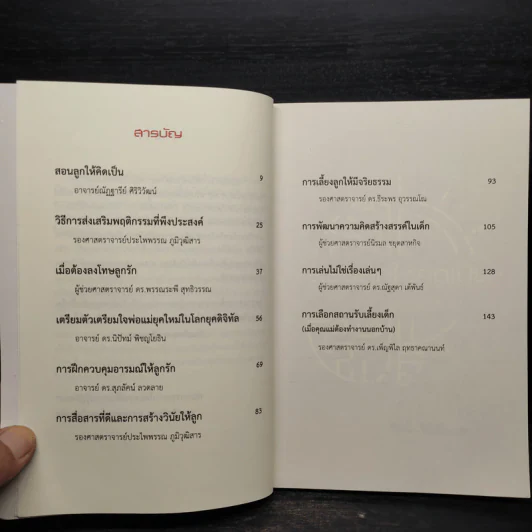 สารบัญ
สอนลูกให้คิดเป็น 9
อาจารย์ณัฏฐารีย์ ศิริวิวัฒน์
วิธีการส่งเสริมพฤติกรรมที่พึงประสงค์ 25
รองศาสตราจารย์ประไพพรรณ ภูมิวุฒิสาร
เมื่อต้องลงโทษลูกรัก 37
ผู้ช่วยศาสตราจารย์ ดร.พรรณระพี สุทธิวรรณ
เตรียมตัวเตรียมใจพ่อแม่ยุคใหม่ในโลกยุคดิจิทัล 56
อาจารย์ ดร.นิปัทม์ พิชญโยธิน
การฝึกควบคุมอารมณ์ให้ลูกรัก 69
อาจารย์ ดร.สุภลัคน์ ลวดลาย
การสื่อสารที่ดีและการสร้างวินัยให้ลูก 83
รองศาสตราจารย์ประไพพรรณ ภูมิวุฒิสาร
การเลี้ยงลูกให้มีจริยธรรม 93
รองศาสตราจารย์ ดร.ธีระพร อุวรรณโณ
การพัฒนาความคิดสร้างสรรค์ในเด็ก 105
ผู้ช่วยศาสตราจารย์นิรมล ชยุตสาหกิจ
การเล่นไม่ใช่เรื่องเล่นๆ 128
ผู้ช่วยศาสตราจารย์ ดร.ณัฐสุดา เต้พันธ์
การเลือกสถานรับเลี้ยงเด็ก 143
(เมื่อคุณแม่ต้องทำงานนอกบ้าน)
รองศาสตราจารย์ ดร.เพ็ญพิไล ฤทธาคณานนท์